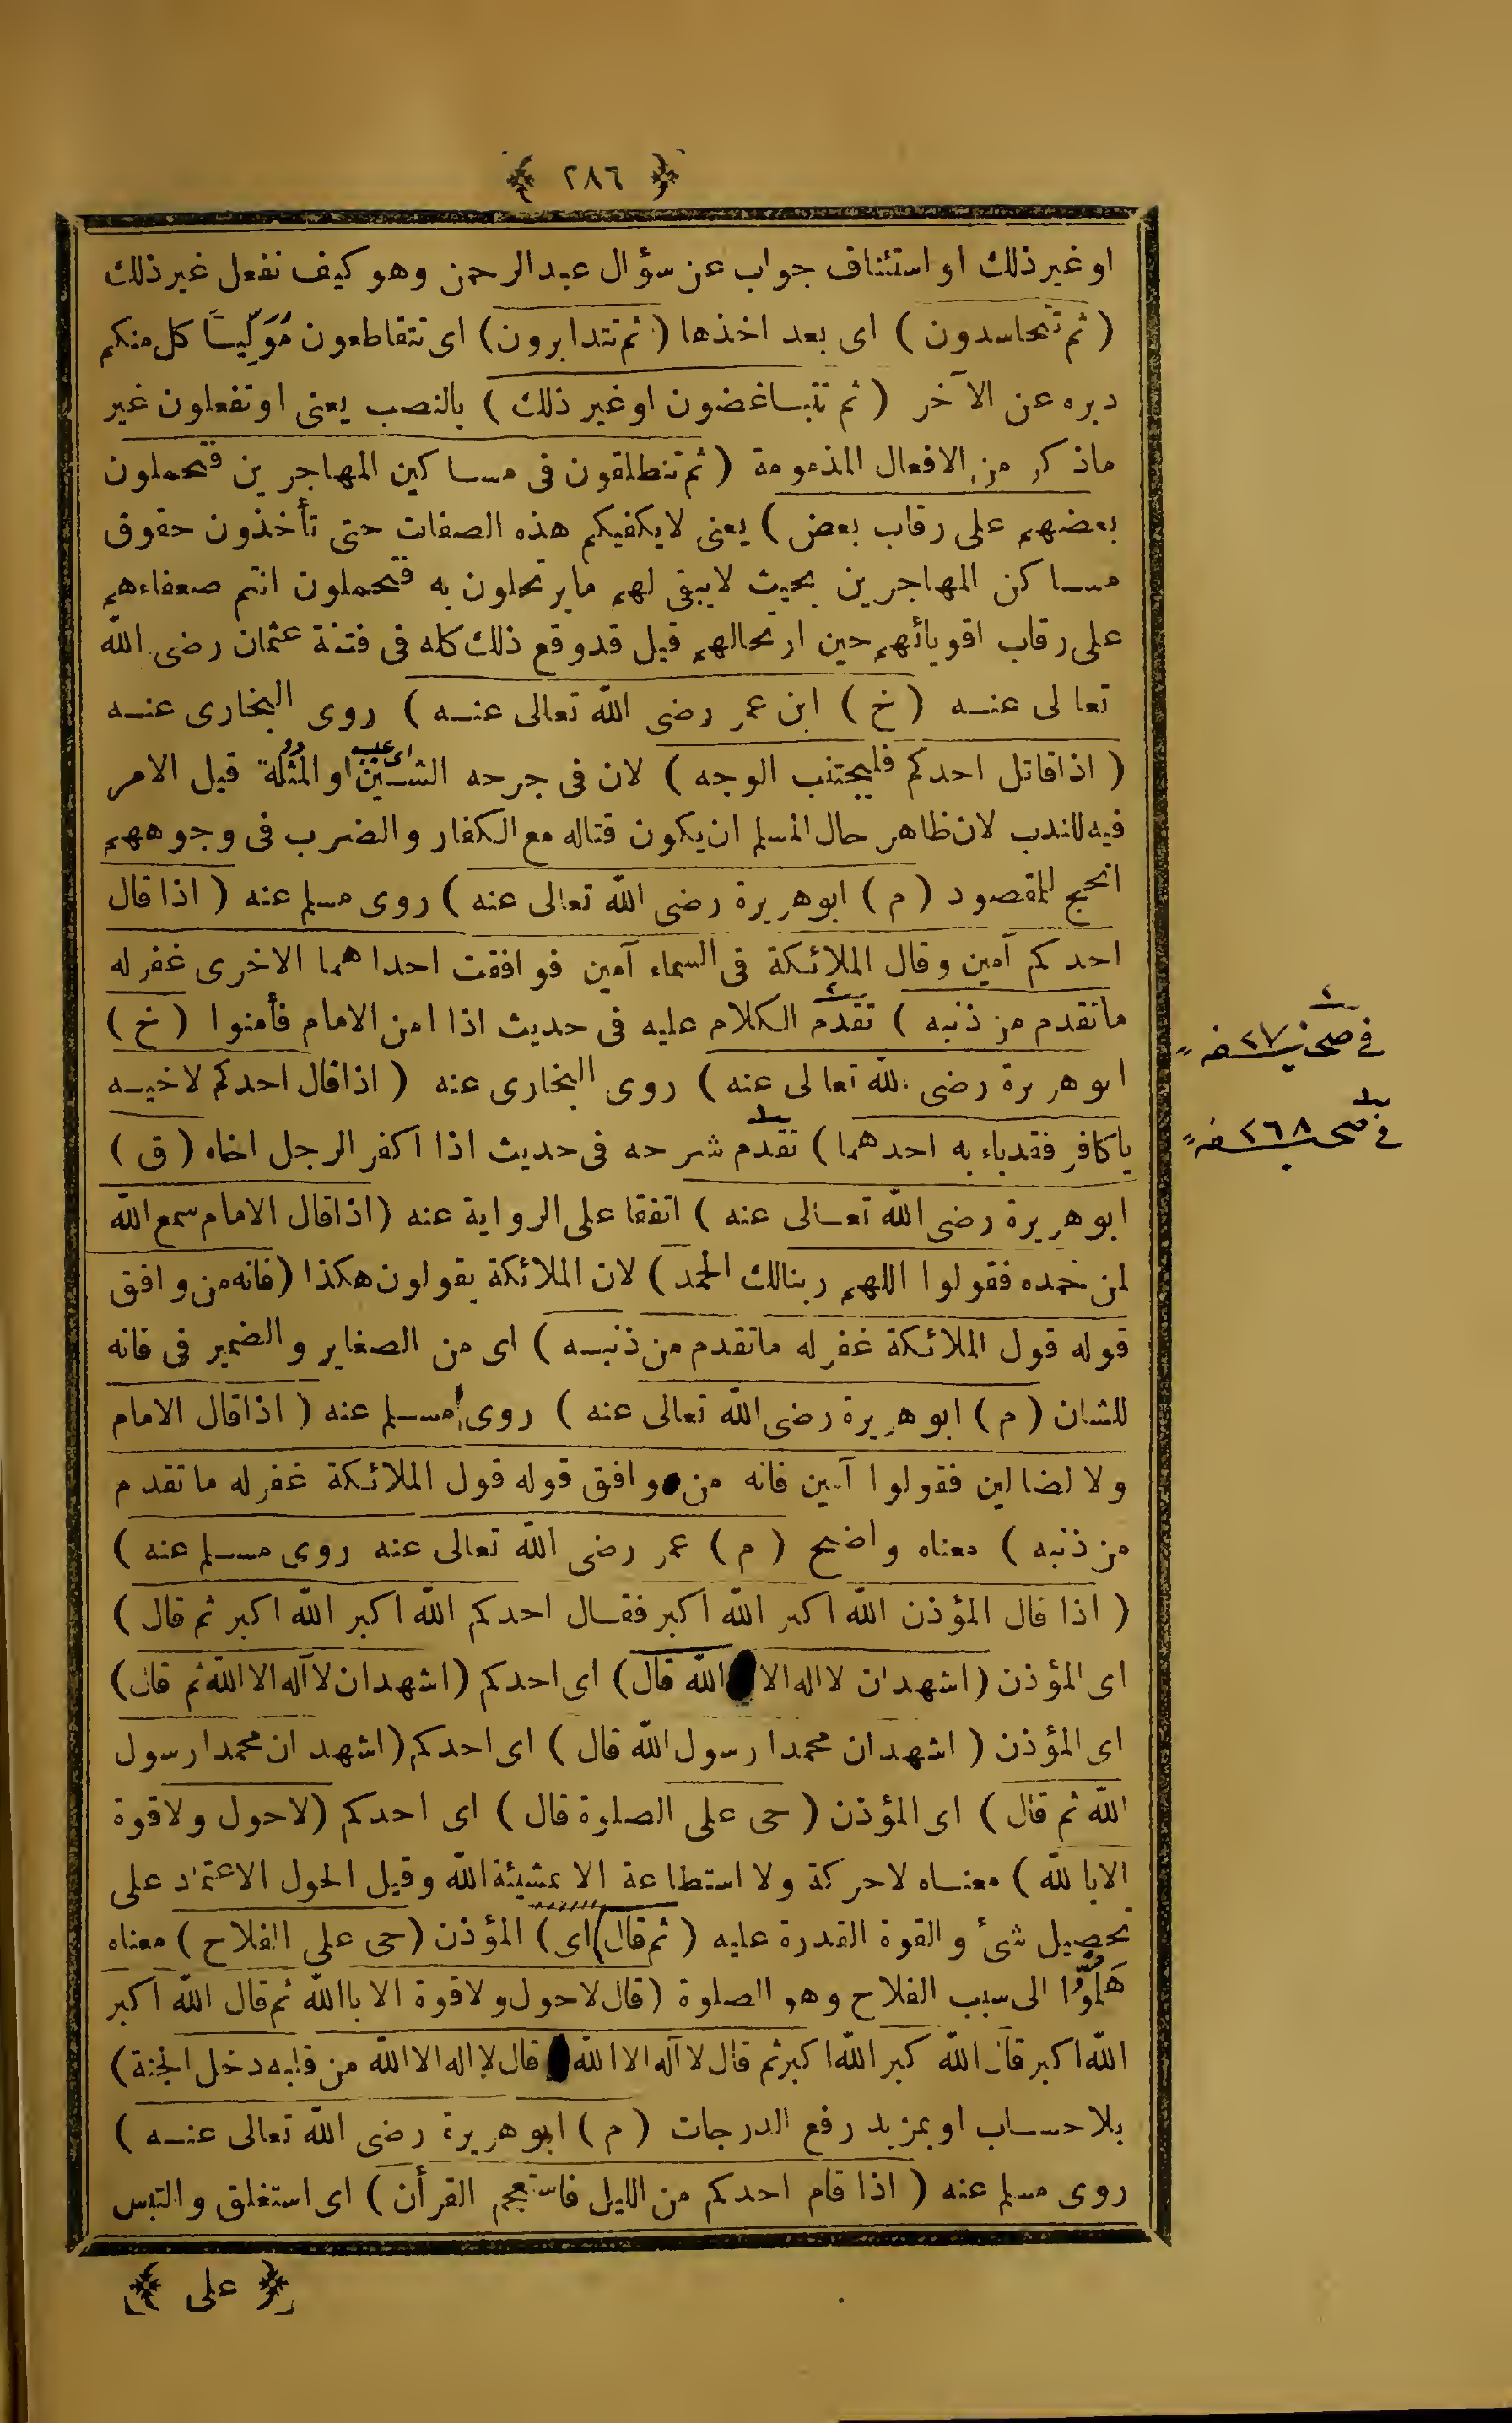 ﴿ ٢٨٦ ﴾
او غير ذلك او استئناف جواب عن سؤال عبدالرحمن وهو كيف نفعل غير ذلك
( ثم تتحاسدون ) اى بعد اخذها ( ثم تتدابرون ) اى تتقاطعون مُوَلِّيًا كل منكم
دبره عن الآخر ( ثم تتباغضون او غير ذلك ) بالنصب يعنى او تفعلون غير
ماذكر من الافعال المذمومة ( ثم تنطلقون فى مساكين المهاجرين فتحملون
بعضهم على رقاب بعض ) يعنى لايكفيكم هذه الصفات حتى تأخذون حقوق
مساكن المهاجرين بحيث لايبقى لهم مايرتحلون به فتحملون انتم ضعفاءهم
على رقاب اقويائهم حين ارتحالهم قيل قدوقع ذلك كله فى فتنة عثمان رضى الله
تعالى عنه ( خ ) ابن عمر رضى الله تعالى عنه ) روى البخارى عنه
( اذاقاتل احدكم فليجتنب الوجه ) لان فى جرحه الشين او المثلة قيل الامر
فيه للندب لان ظاهر حال المسلم ان يكون قتاله مع الكفار والضرب فى وجوههم
انجح للمقصود ( م ) ابوهريرة رضى الله تعالى عنه ) روى مسلم عنه ( اذا قال
احدكم آمين وقال الملائكة فى السماء آمين فوافقت احداهما الاخرى غفر له
ماتقدم من ذنبه ) تقدم الكلام عليه فى حديث اذا امن الامام فأمنوا ( خ )
ابوهريرة رضى الله تعالى عنه ) روى البخارى عنه ( اذاقال احدكم لاخيه
ياكافر فقدباء به احدهما ) تقدم شرحه فى حديث اذا اكفر الرجل اخاه ( ق )
ابوهريرة رضى الله تعالى عنه ) اتفقا على الرواية عنه ( اذاقال الامام سمع الله
لمن حمده فقولوا اللهم ربنالك الحمد ) لان الملائكة يقولون هكذا ( فانه من وافق
قوله قول الملائكة غفر له ماتقدم من ذنبه ) اى من الصغاير والضمير فى فانه
للشان ( م ) ابوهريرة رضى الله تعالى عنه ) روى مسلم عنه ( اذاقال الامام
ولا لضالين فقولوا آمين فانه من وافق قوله قول الملائكة غفر له ماتقدم
من ذنبه ) معناه واضح ( م ) عمر رضى الله تعالى عنه روى مسلم عنه )
( اذا قال المؤذن الله اكبر الله اكبر فقال احدكم الله اكبر الله اكبر ثم قال )
اى المؤذن ( اشهدان لااله الا الله قال ) اى احدكم ( اشهدان لاآله الا الله ثم قال )
اى المؤذن ( اشهدان محمدا رسول الله قال ) اى احدكم ( اشهد ان محمدا رسول
الله ثم قال ) اى المؤذن ( حى على الصلوة قال ) اى احدكم ( لاحول ولاقوة
الابالله ) معناه لاحركة ولا استطاعة الا بمشيئة الله وقيل الحول الاعتماد على
تحصيل شئ والقوة القدرة عليه ( ثم قال ) اى ) المؤذن ( حى على الفلاح ) معناه
هَلُمُّوا الى سبب الفلاح وهو الصلوة ( قال لاحول ولاقوة الا باالله ثم قال الله اكبر
الله اكبر قال الله كبر الله اكبر ثم قال لاآله الا الله قال لااله الا الله من قلبه دخل الجنة )
بلاحساب او بمزيد رفع الدرجات ( م ) ابوهريرة رضى الله تعالى عنه )
روى مسلم عنه ( اذا قام احدكم من الليل فاستعجم القرأن ) اى استغلق والتبس
﴿ على ﴾
اى عيب
فى صحيفه ٢٦٨